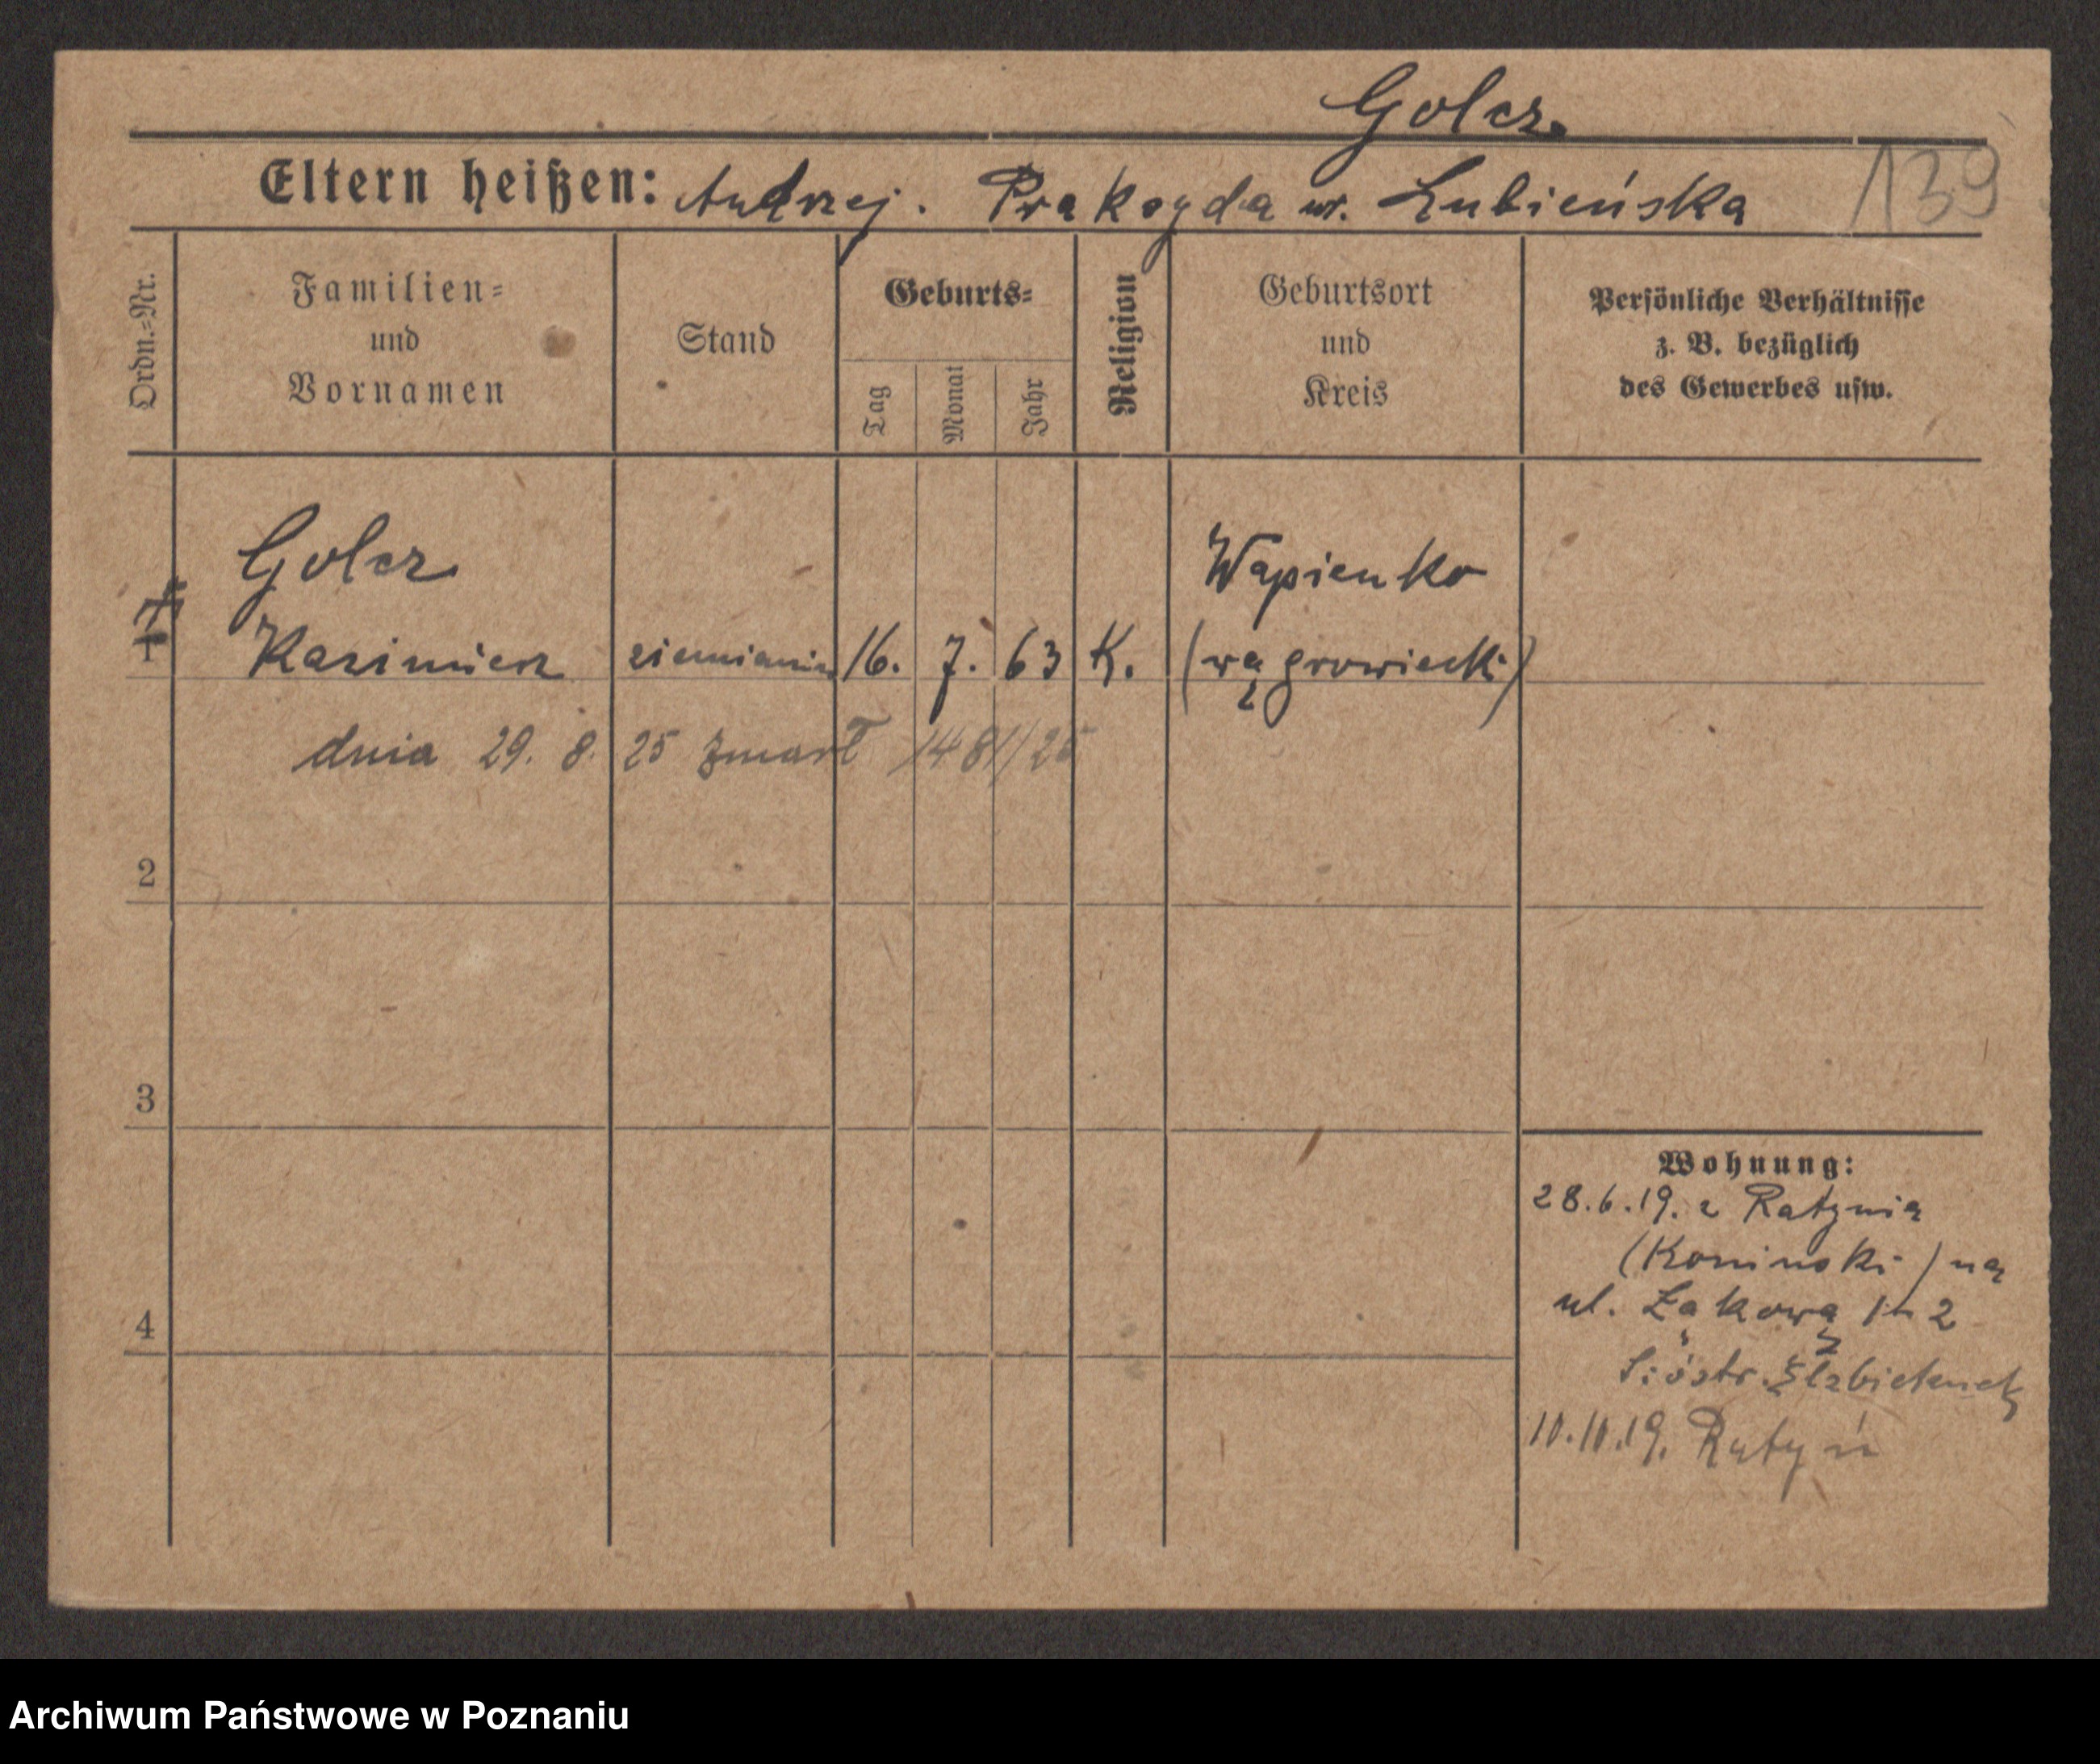 Golcz
Eltern heißen: Andrzej. Prakseda ur. Łubieńska 139
Ordn.=Nr.
Familien=
und
Vornamen
Stand
Geburts=
Tag
Monat
Jahr
Religion
Geburtsort
und
Kreis
Persönliche Verhältnisse
z. B. bezüglich
des Gewerbes usw.
Golcz
Wapienko
1 Kazimierz ziemianin 16. 7. 63 K. (wągrowiecki)
dnia 29. 8. 25 zmarł 1481/25
2
3
4
Wohnung:
28.6.19. z Ratynia
(Koniński) na
ul. Łąkową 1 2
Sióstr. Elżbietanek
10.10.19. Ratyń
Archiwum Państwowe w Poznaniu